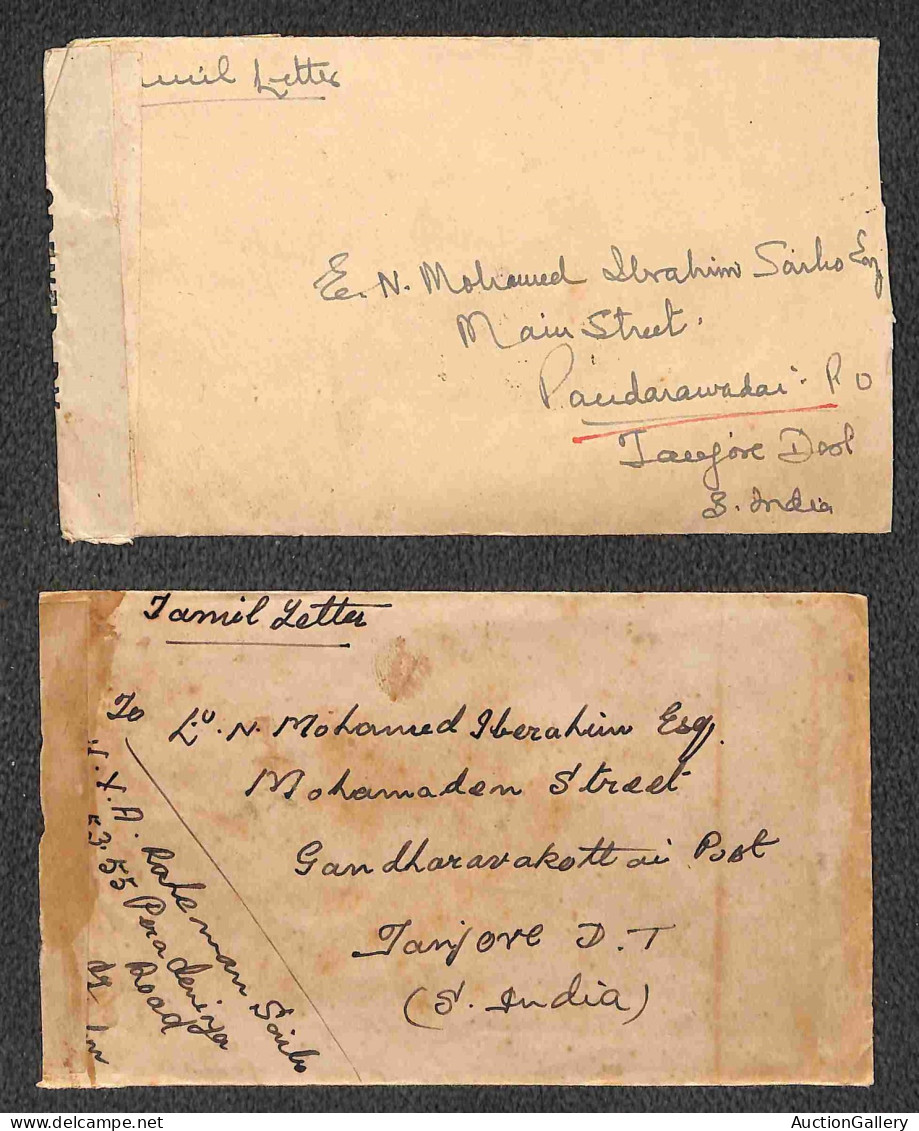 Letter
E. N. Mohamed Ibrahim Saibo Esq
Main Street.
Pandarawadai. P O
Tanjore Dist
S. India
Tamil Letter
To
N. Mohamed Iberahim Esq.
Mohamaden Street
Gandharavakottai Post
Tanjore D.T
(S. India)
A. Raheman Saibo
55 Peradeniya
Road
AuctionGallery